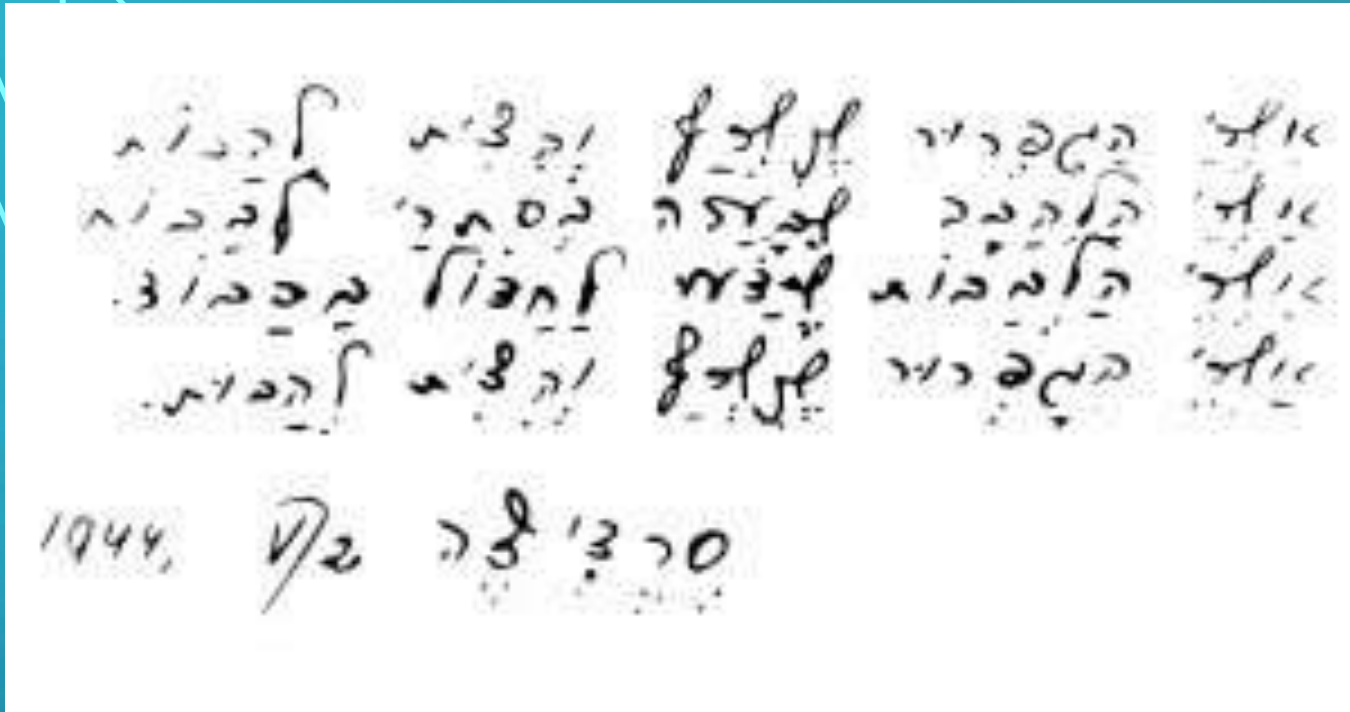 אשרי הגפרור שנשרף והצית להבות
אשרי הלהבה שבערה בסתרי לבבות
אשרי הלבבות שידעו לחדול בכבוד.
אשרי הגפרור שנשרף והצית להבות.
סרדיצה 2/V 1944,